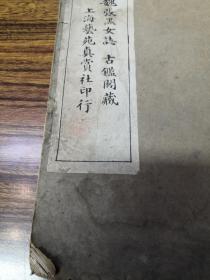 魏張黑女誌 古鑑閣藏
上海藝苑真賞社印行